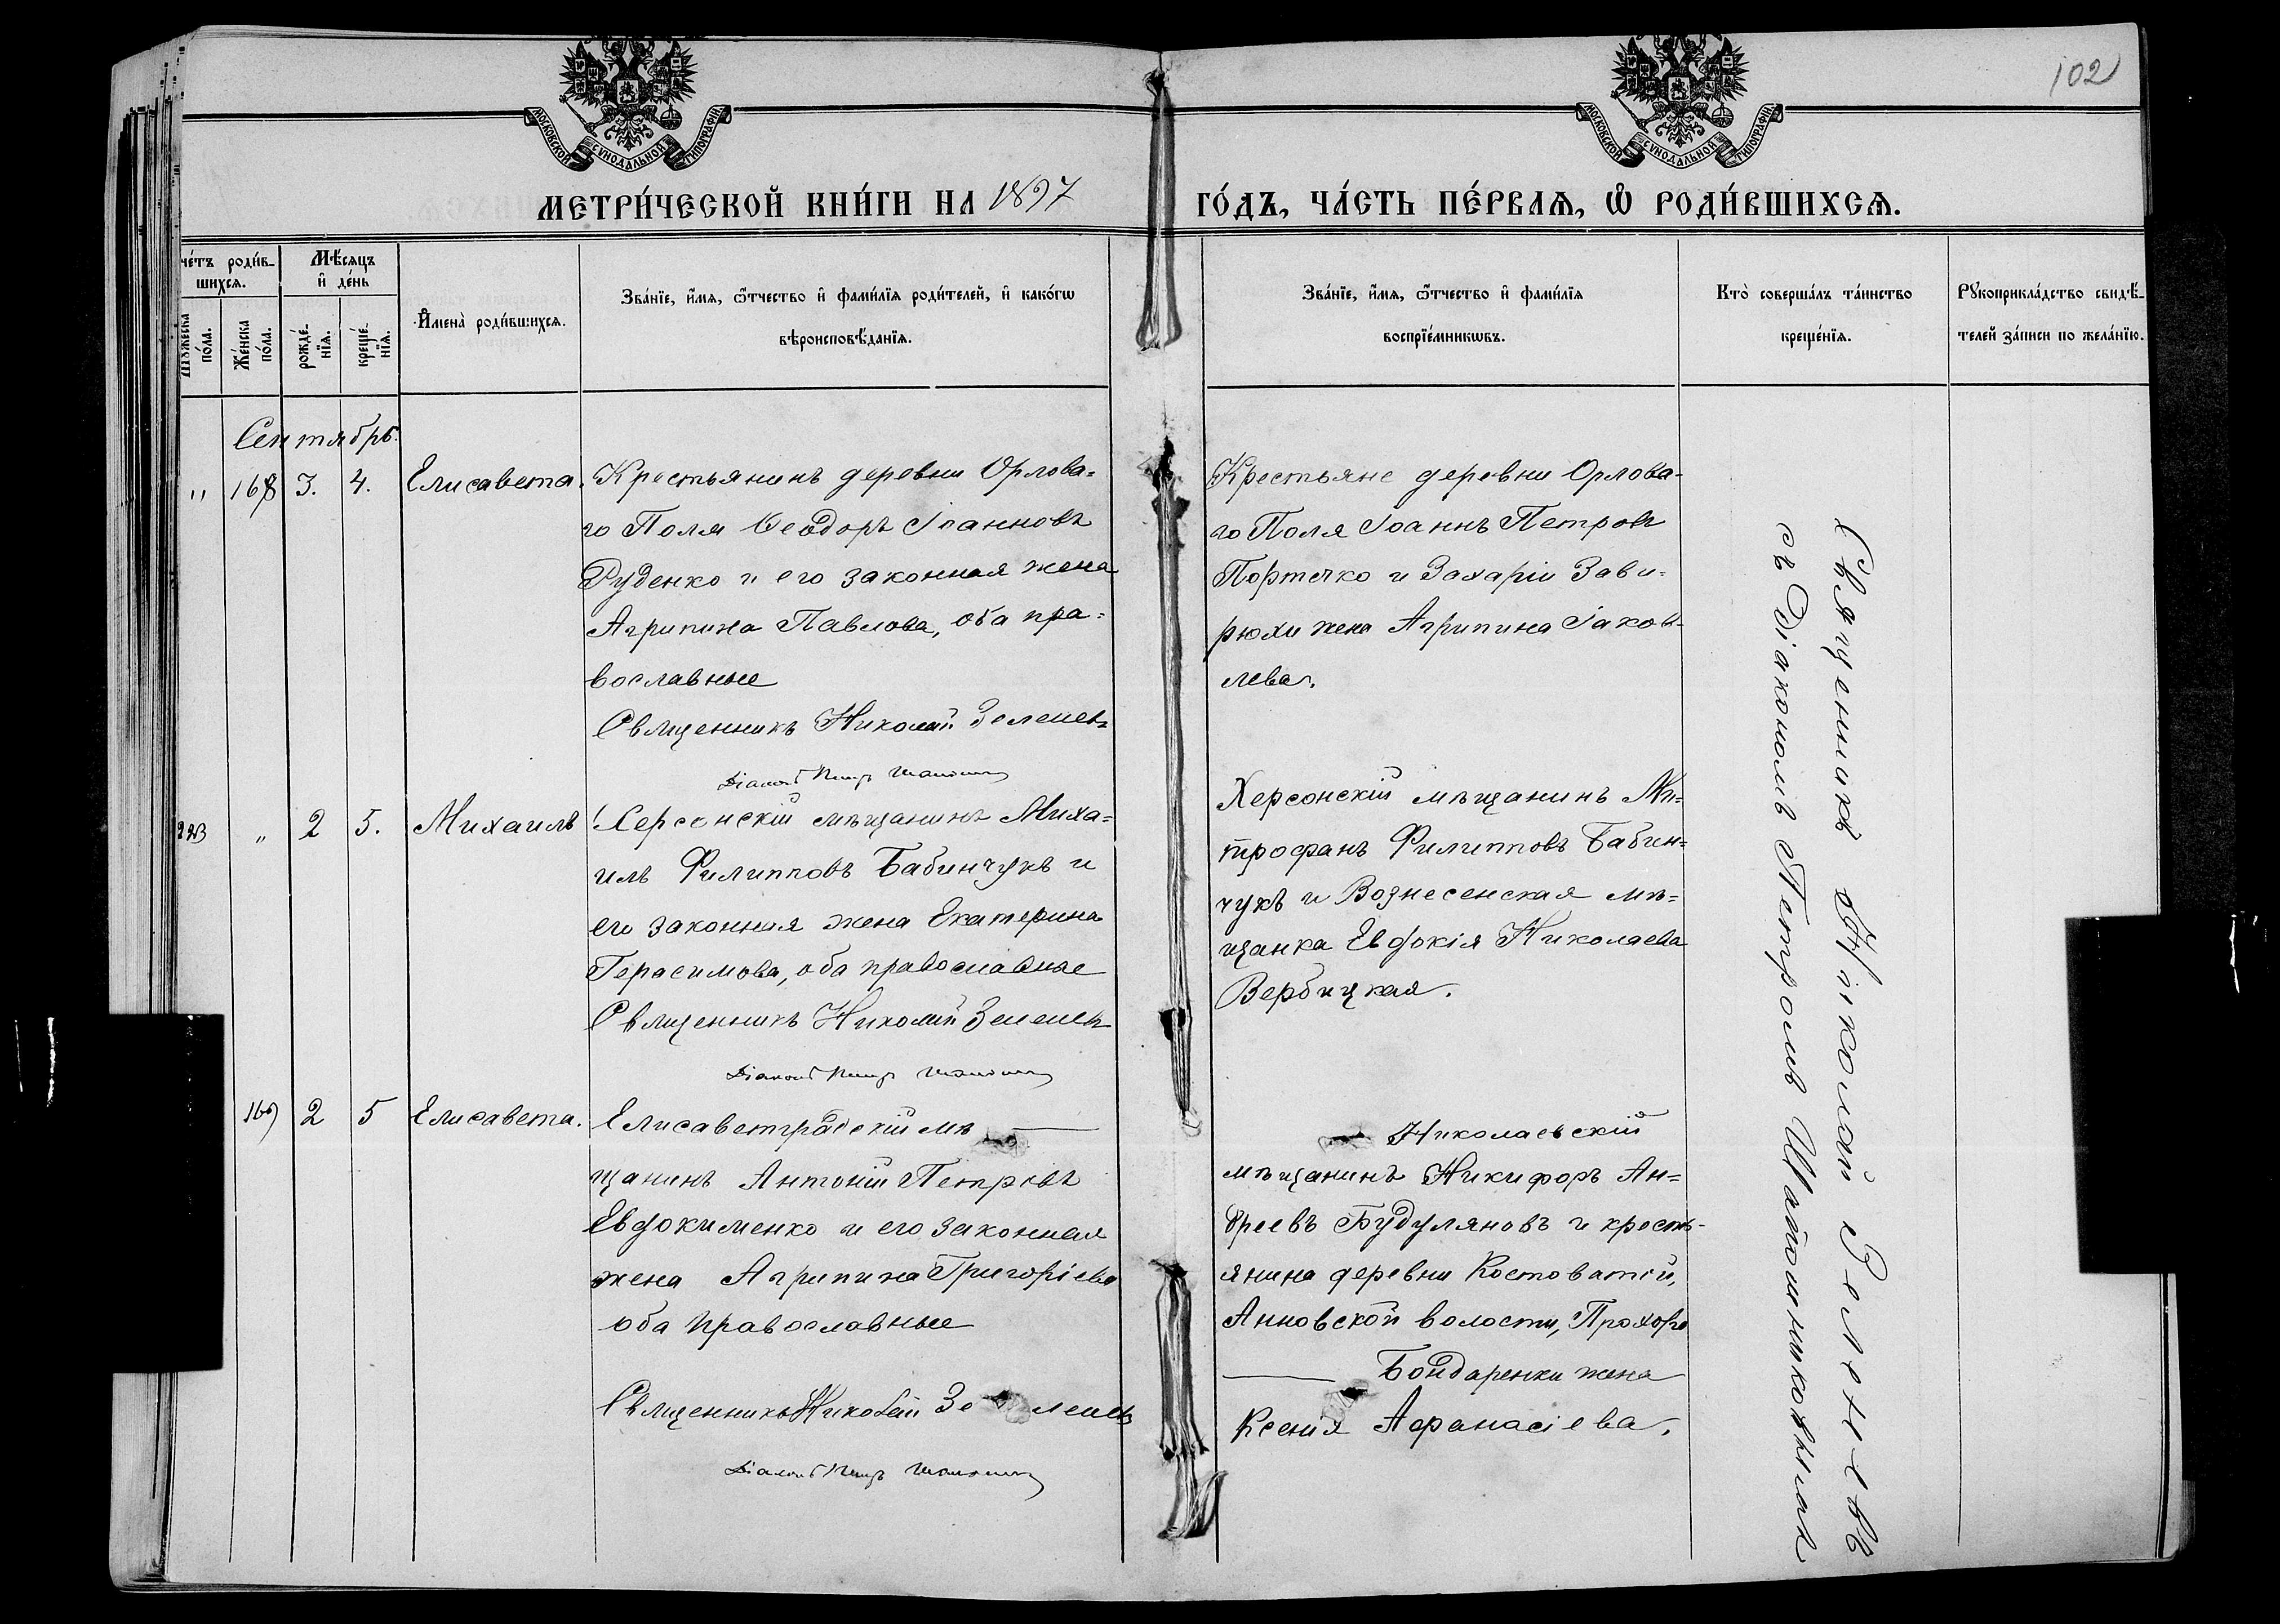 102
МОСКОВСКОЙ СѴНОДАЛЬНОЙ ТИПОГРАФІИ
МОСКОВСКОЙ СѴНОДАЛЬНОЙ ТИПОГРАФІИ
МЕТРИ́ЧЕСКОЙ КНИ́ГИ НА 1897
ГО́ДЪ, ЧА́СТЬ ПЕ́РВАѦ, Ѡ РОДИ́ВШИХСѦ.
че́тъ роди́в-
шихсѧ.
Мѣ́сѧцъ
и҆ де́нь
Мꙋжеска
по́ла.
Же́нска
по́ла.
рожде́-
нїѧ.
креще́-
нїѧ.
И҆мена̀ роди́вшихсѧ.
Зва́нїе, и҆́мѧ, ѻ҆́тчество и҆ фами́лїѧ роди́телей, и҆ како́гѡ
вѣроисповѣ́данїѧ.
Зва́нїе, и҆́мѧ, ѻ҆́тчество и҆ фами́лїѧ
воспрїе́мникѡвъ.
Кто̀ соверша́лъ та́инство
креще́нїѧ.
Рꙋкоприкла́дство свидѣ́-
телей за́писи по жела́нїю.
Сентябрь.
" 168 3. 4. Елисавета.
Крестьянинъ деревни Орлова=
го Поля Ѳеодоръ Іоанновъ
Руденко и его законная жена
Агрипина Павлова, оба пра=
вославные
Священникъ Николай Зеленев
Діаконъ Петръ
Крестьяне деревни Орлова-
го Поля Іоаннъ Петровъ
Портечко и Захаріи Зави=
рюхи жена Агрипина Іаков-
лева.
223 " 2 5. Михаилъ
Херсонскій мѣщанинъ Миха=
илъ Филипповъ Бабинчукъ и
его законная жена Екатерина
Герасимова, оба православные
Священникъ Николай Зеленев
Діаконъ Петръ
Херсонскій мѣщанинъ Ми=
трофанъ Филипповъ Бабин=
чукъ и Вознесенская мѣ=
щанка Евдокія Николаева
Вербицкая.
169 2 5 Елисавета.
Елисаветградскій мѣ
щанинъ Антоній Петровъ
Евдокименко и его законная
жена Агрипина Григоріева
оба православные
Священникъ Николай Зе леневъ
Діаконъ Петръ
Николаевскій
мѣщанинъ Никифоръ Ан=
дреевъ Будуляновъ и кресть-
янина деревни Костоватой,
Анновской волости, Прохора
Бондаренки жена
Ксенія Аѳанасіева.
Священникъ Николай Зеленевъ
съ Діакономъ Петромъ